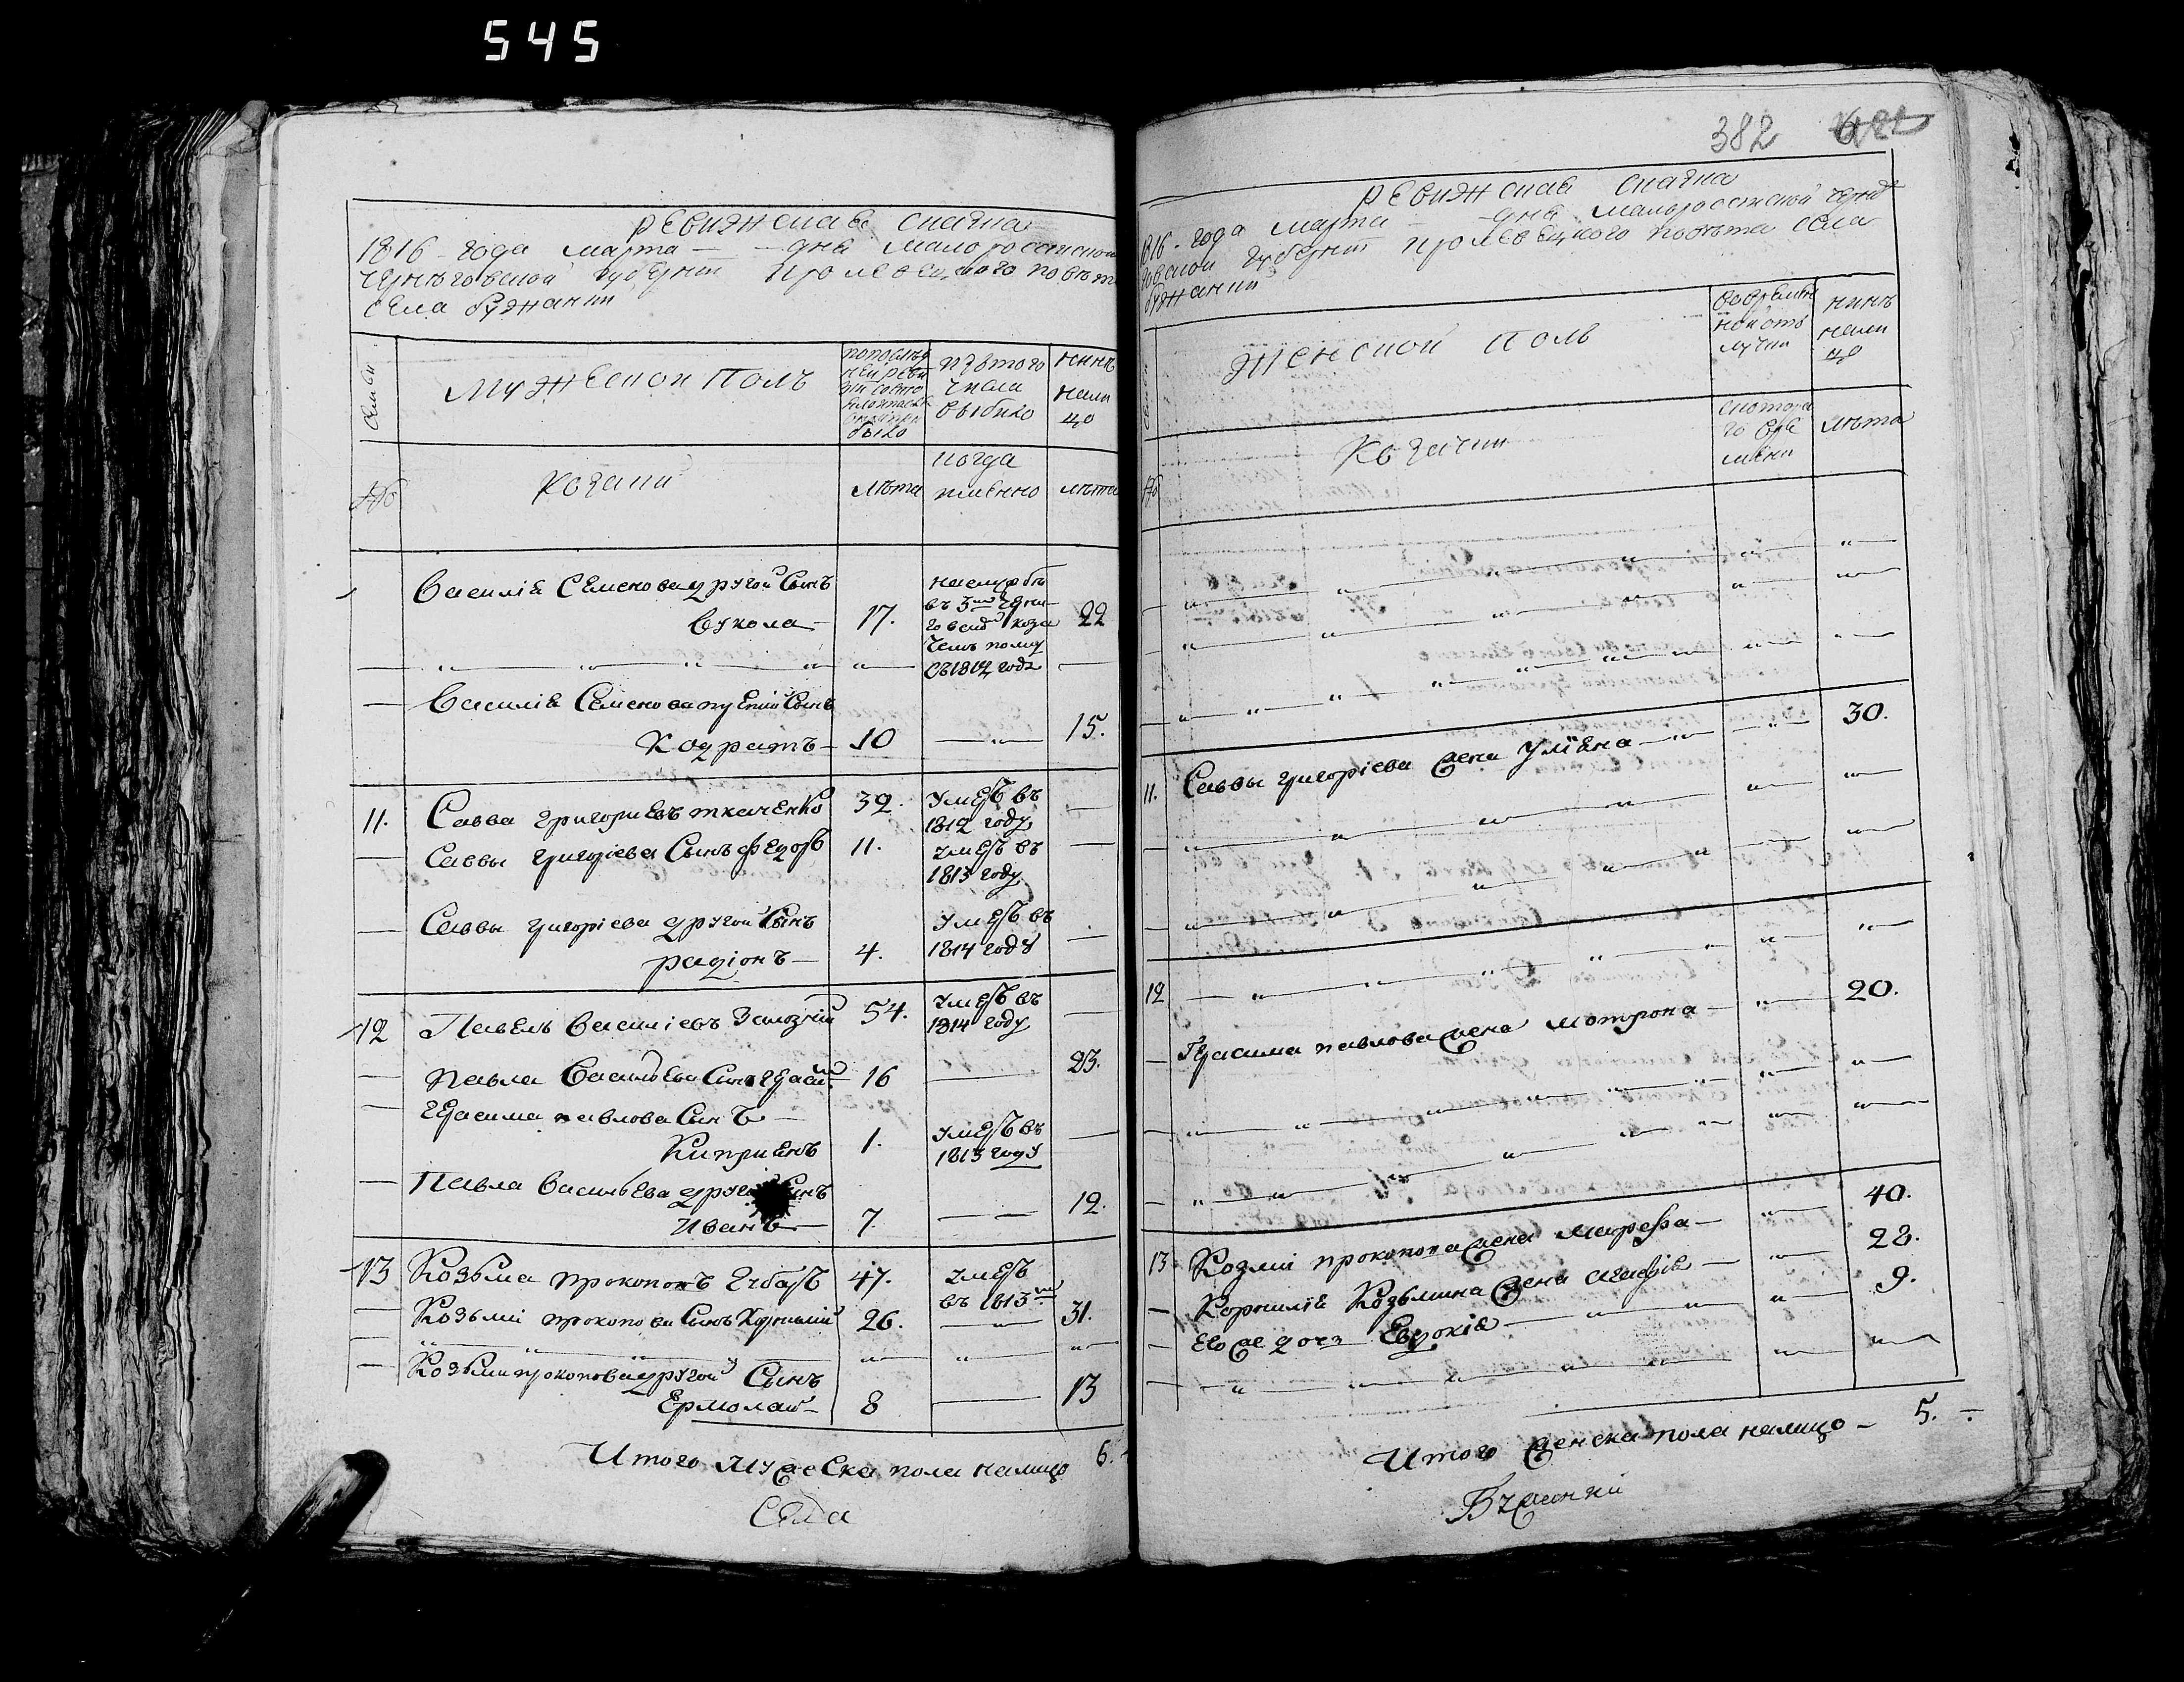 545
ревижская скаска
1816 - года марта — дня малороссиской
Черниговской губернии Кролевецкого повета
села бужанки
семьи
мужеской полъ
по последней ревизии состояло и после оной было
изъ того числа выбыло
ныне на лицо
№
козаки
лета
когда именно
лета
Василия Семенова другой Сынъ
Вукола — 17. 22
въ 1814 годе
Василия Семенова третий Сынъ
Кодратъ — 10 15.
11. Савва григориевъ ткаченко 39. умеръ въ 1812 году
Саввы григориева Сынъ федоръ 11. умеръ въ 1813 году
Саввы григориева другой Сынъ
радионъ — 4. умеръ въ 1814 году
12 Павелъ Василиевъ 54. умеръ въ 1814 году
Павла Василиева Сынъ Герасим 16 23.
Герасима павлова Сынъ —
Киприенъ 1. умеръ въ 1813 году
Павла Васильева другой Сынъ
Иванъ — 7. 12.
13 Козьма прокоповъ 47. умеръ въ 1813м
Козьми прокопова Сынъ Корнилий 26. 31.
Козьми прокопова другой Сынъ
Ермолай — 8 13
Итого мужеска пола налицо 6.
Села
382
ревижская скаска
1816 - года марта — дня малоросиской Черни
говской губернии кролевецкого повета села
бужанки
семьи
женской полъ
во временной отлучки
ныне на лицо
№
козачки
с которого времени
лета
11. Саввы григориева жена Улиена — 30.
12
Герасима павлова жена мотрона — 20.
13 Козми прокопова жена марфа — 40.
Корнилия Козьмина жена агафия — 28.
Его же дочь Евдокия — 9.
Итого женска пола налицо — 5. —
Бужанки